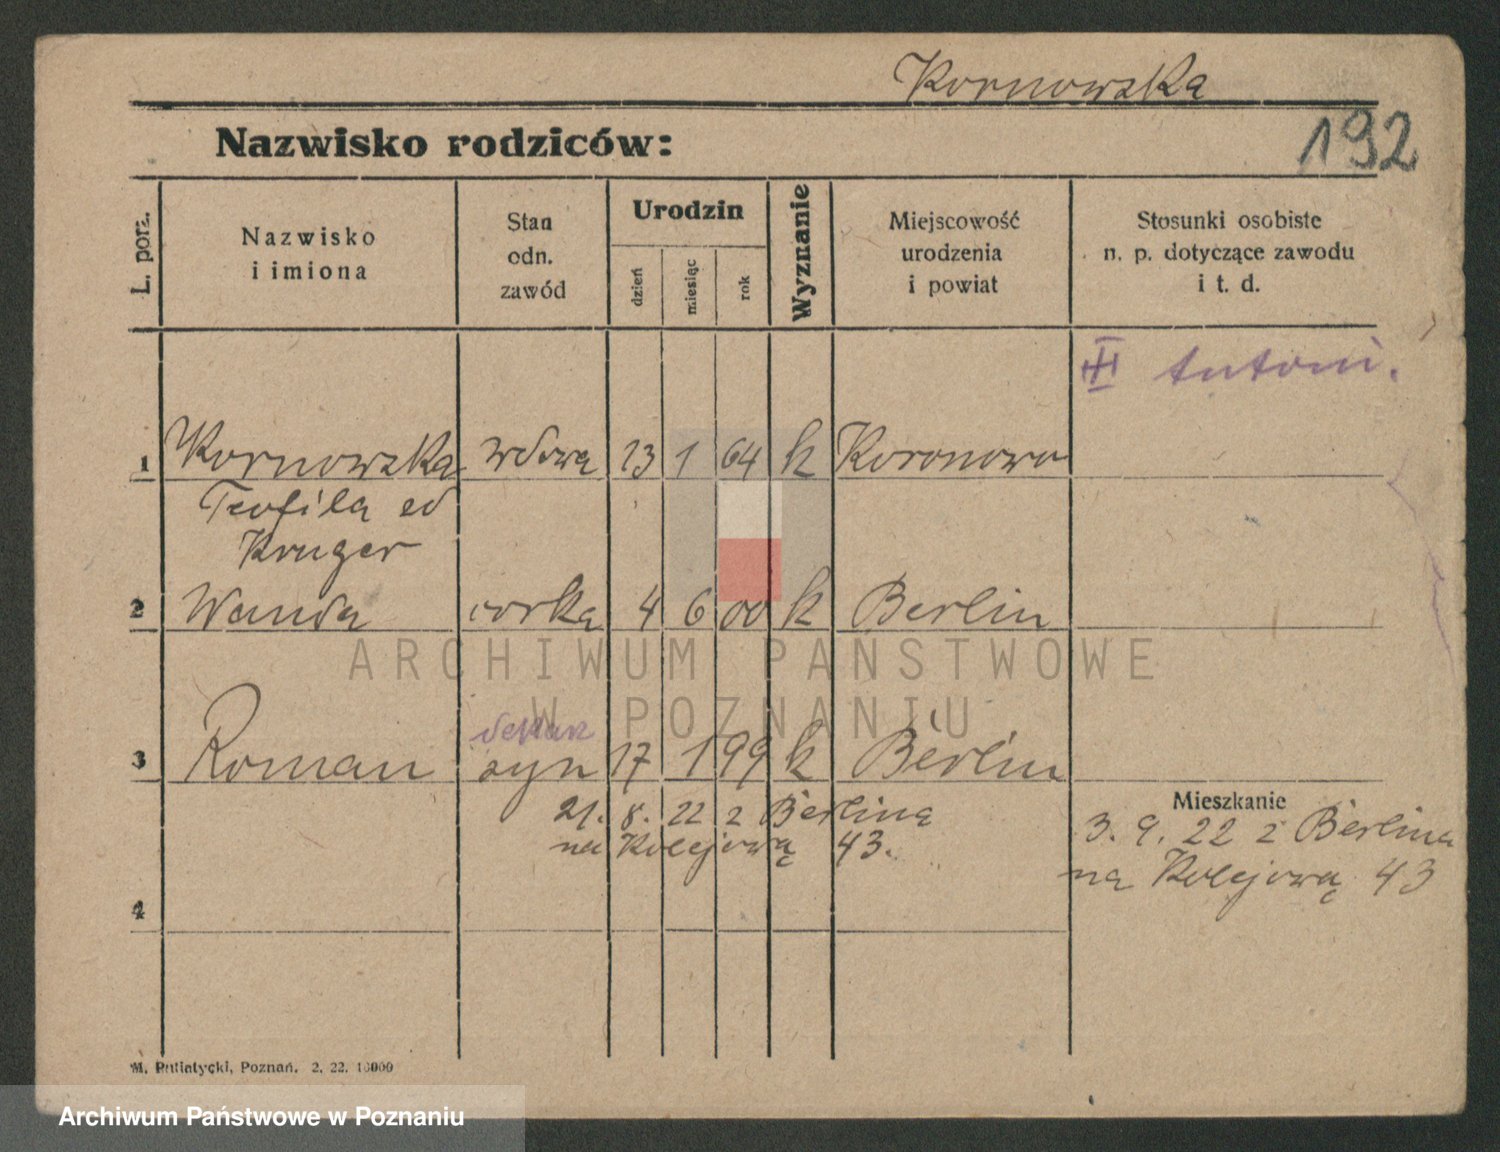 Kornowska
Nazwisko rodziców:
192
L. porz.
Nazwisko
i imiona
Stan
odn.
zawód
Urodzin
dzień
miesiąc
rok
Wyznanie
Miejscowość
urodzenia
i powiat
Stosunki osobiste
n. p. dotyczące zawodu
i t. d.
III Antoni.
1 Kornowska wdowa 23 1 64 k Koronowo
Teofila ed
Kruger
2 Wanda corka 4 6 00 k Berlin
ARCHIWUM PAŃSTWOWE
W POZNANIU
3 Roman syn 17 1 99 k Berlin
Mieszkanie
21. 8. 22 z Berlina
na Kolejową 43.
3. 9. 22 z Berlina
na Kolejową 43
4
M. Putiatycki, Poznań. 2. 22. 10000
Archiwum Państwowe w Poznaniu